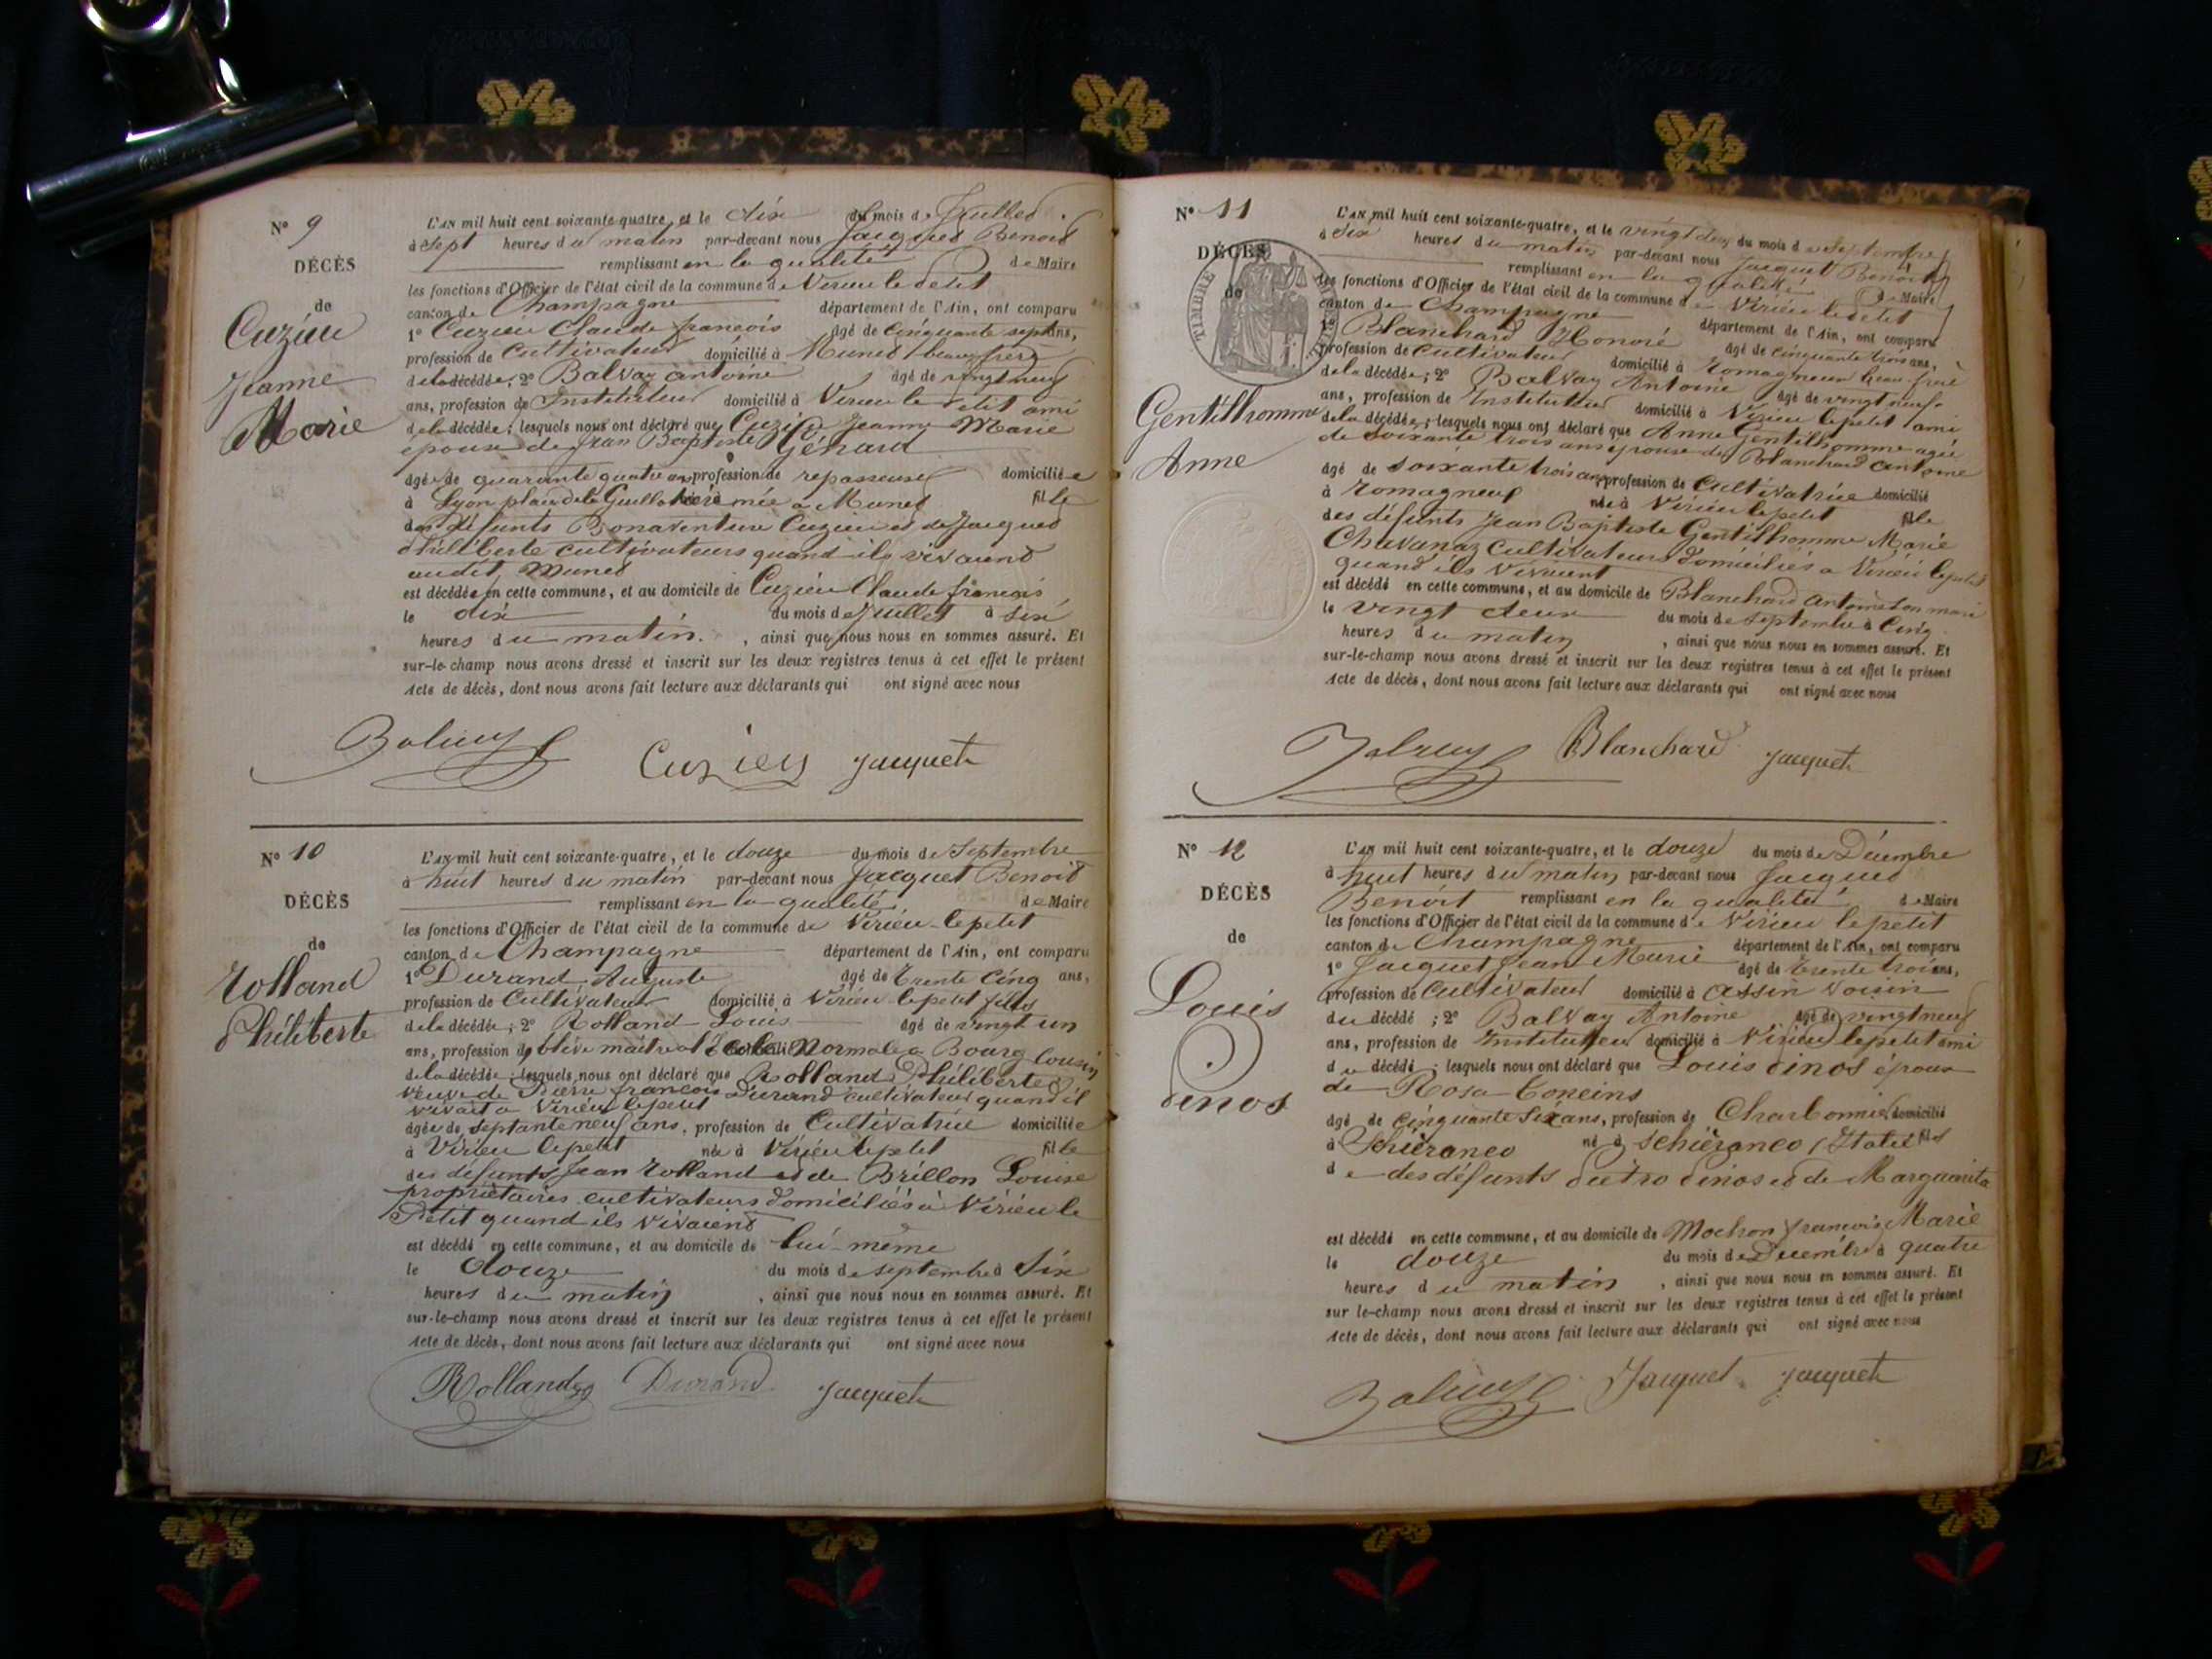 N° 9
DÉCÈS
de
Cuzieu
Jeanne
Marie
L'AN mil huit cent soixante-quatre, et le dix du mois de Juillet
à sept heures du matin par-devant nous Jacquet Benoit
remplissant en la qualité de Maire
les fonctions d'Officier de l'état civil de la commune de Virieu le petit
canton de Champagne département de l'Ain, ont comparu
1° Cuzieu Claude françois âgé de cinquante sept ans,
profession de Cultivateur domicilié à Munet beau frère
de la décédée; 2° Balvay antoine âgé de vingt neuf
ans, profession de Instituteur domicilié à Virieu le petit ami
de la décédée; lesquels nous ont déclaré que Cuzieu Jeanne Marie
épouse de Jean Baptiste Génard
âgée de quarante quatre ans, profession de repasseuse domiciliée
à Lyon place de la Guillotière née à Munet fille
des défunts Bonaventure Cuzieu et de Jacquet
Philiberte cultivateurs quand ils vivaient
audit Munet
est décédée en cette commune, et au domicile de Cuzieu Claude françois
le dix du mois de Juillet à six
heures du matin. , ainsi que nous nous en sommes assuré. Et
sur-le-champ nous avons dressé et inscrit sur les deux registres tenus à cet effet le présent
Acte de décès, dont nous avons fait lecture aux déclarants qui ont signé avec nous
Balvay Cuzieu Jacquet
N° 10
DÉCÈS
de
Rolland
Philiberte
L'AN mil huit cent soixante-quatre, et le douze du mois de Septembre
à huit heures du matin par-devant nous Jacquet Benoit
remplissant en la qualité de Maire
les fonctions d'Officier de l'état civil de la commune de Virieu-le petit
canton de Champagne département de l'Ain, ont comparu
1° Durand Auguste âgé de trente cinq ans,
profession de Cultivateur domicilié à Virieu le petit fils
de la décédée; 2° Rolland Louis âgé de vingt un
ans, profession d'élève maître à l'école Normale à Bourg cousin
de la décédée; lesquels nous ont déclaré que Rolland Philiberte
veuve de Pierre françois Durand cultivateur quand il
vivait à Virieu le petit
âgée de septante neuf ans, profession de Cultivatrice domiciliée
à Virieu le petit née à Virieu le petit fille
des défunts Jean Rolland et de Brillon Louise
propriétaires cultivateurs domiciliés à Virieu le
Petit quand ils vivaient
est décédé en cette commune, et au domicile de lui-même
le douze du mois de septembre à Six
heures du matin , ainsi que nous nous en sommes assuré. Et
sur-le-champ nous avons dressé et inscrit sur les deux registres tenus à cet effet le présent
Acte de décès, dont nous avons fait lecture aux déclarants qui ont signé avec nous
Rolland Durand Jacquet
N° 11
DÉCÈS
de
TIMBRE
Gentilhomme
Anne
L'AN mil huit cent soixante-quatre, et le vingt deux du mois de Septembre
à Six heures du matin par-devant nous Jacquet Benoit
remplissant en la qualité de Maire
les fonctions d'Officier de l'état civil de la commune de Virieu le petit
canton de Champagne département de l'Ain, ont comparu
1° Blanchard Honoré âgé de cinquante trois ans,
profession de Cultivateur domicilié à Romagneux beau-frère
de la décédée; 2° Balvay Antoine âgé de vingt neuf
ans, profession de Instituteur domicilié à Virieu le petit ami
de la décédée; lesquels nous ont déclaré que Anne Gentilhomme agée
de soixante trois ans épouse de Blanchard Antoine
âgé de soixante trois ans, profession de Cultivatrice domicilié
à Romagneux née à Virieu le petit fille
des défunts Jean Baptiste Gentilhomme Marie
Chavanaz cultivateurs domiciliés à Virieu le petit
quand ils vivaient
est décédé en cette commune, et au domicile de Blanchard antoine son mari
le vingt deux du mois de septembre à Cinq
heures du matin , ainsi que nous nous en sommes assuré. Et
sur-le-champ nous avons dressé et inscrit sur les deux registres tenus à cet effet le présent
Acte de décès, dont nous avons fait lecture aux déclarants qui ont signé avec nous
Balvay Blanchard Jacquet
N° 12
DÉCÈS
de
Louis
dinos
L'AN mil huit cent soixante-quatre, et le douze du mois de Décembre
à huit heures du matin par-devant nous Jacquet
Benoit remplissant en la qualité de Maire
les fonctions d'Officier de l'état civil de la commune de Virieu le petit
canton de Champagne département de l'Ain, ont comparu
1° Jacquet Jean Marie âgé de trente trois ans,
profession de Cultivateur domicilié à assin voisin
du décédé ; 2° Balvay Antoine âgé de vingt neuf
ans, profession de Instituteur domicilié à Virieu le petit ami
du décédé ; lesquels nous ont déclaré que Louis dinos époux
de Rosa Concins
âgé de cinquante Six ans, profession de Charbonnier domicilié
à Schieranco né à Schieranco (Italie) fils
de des défunts dietro dinos et de Marguarita
est décédé en cette commune, et au domicile de Mochon françois Marie
le douze du mois de Décembre à quatre
heures du matin , ainsi que nous nous en sommes assuré. Et
sur le-champ nous avons dressé et inscrit sur les deux registres tenus à cet effet le présent
Acte de décès, dont nous avons fait lecture aux déclarants qui ont signé avec nous
Balvay Jacquet Jacquet